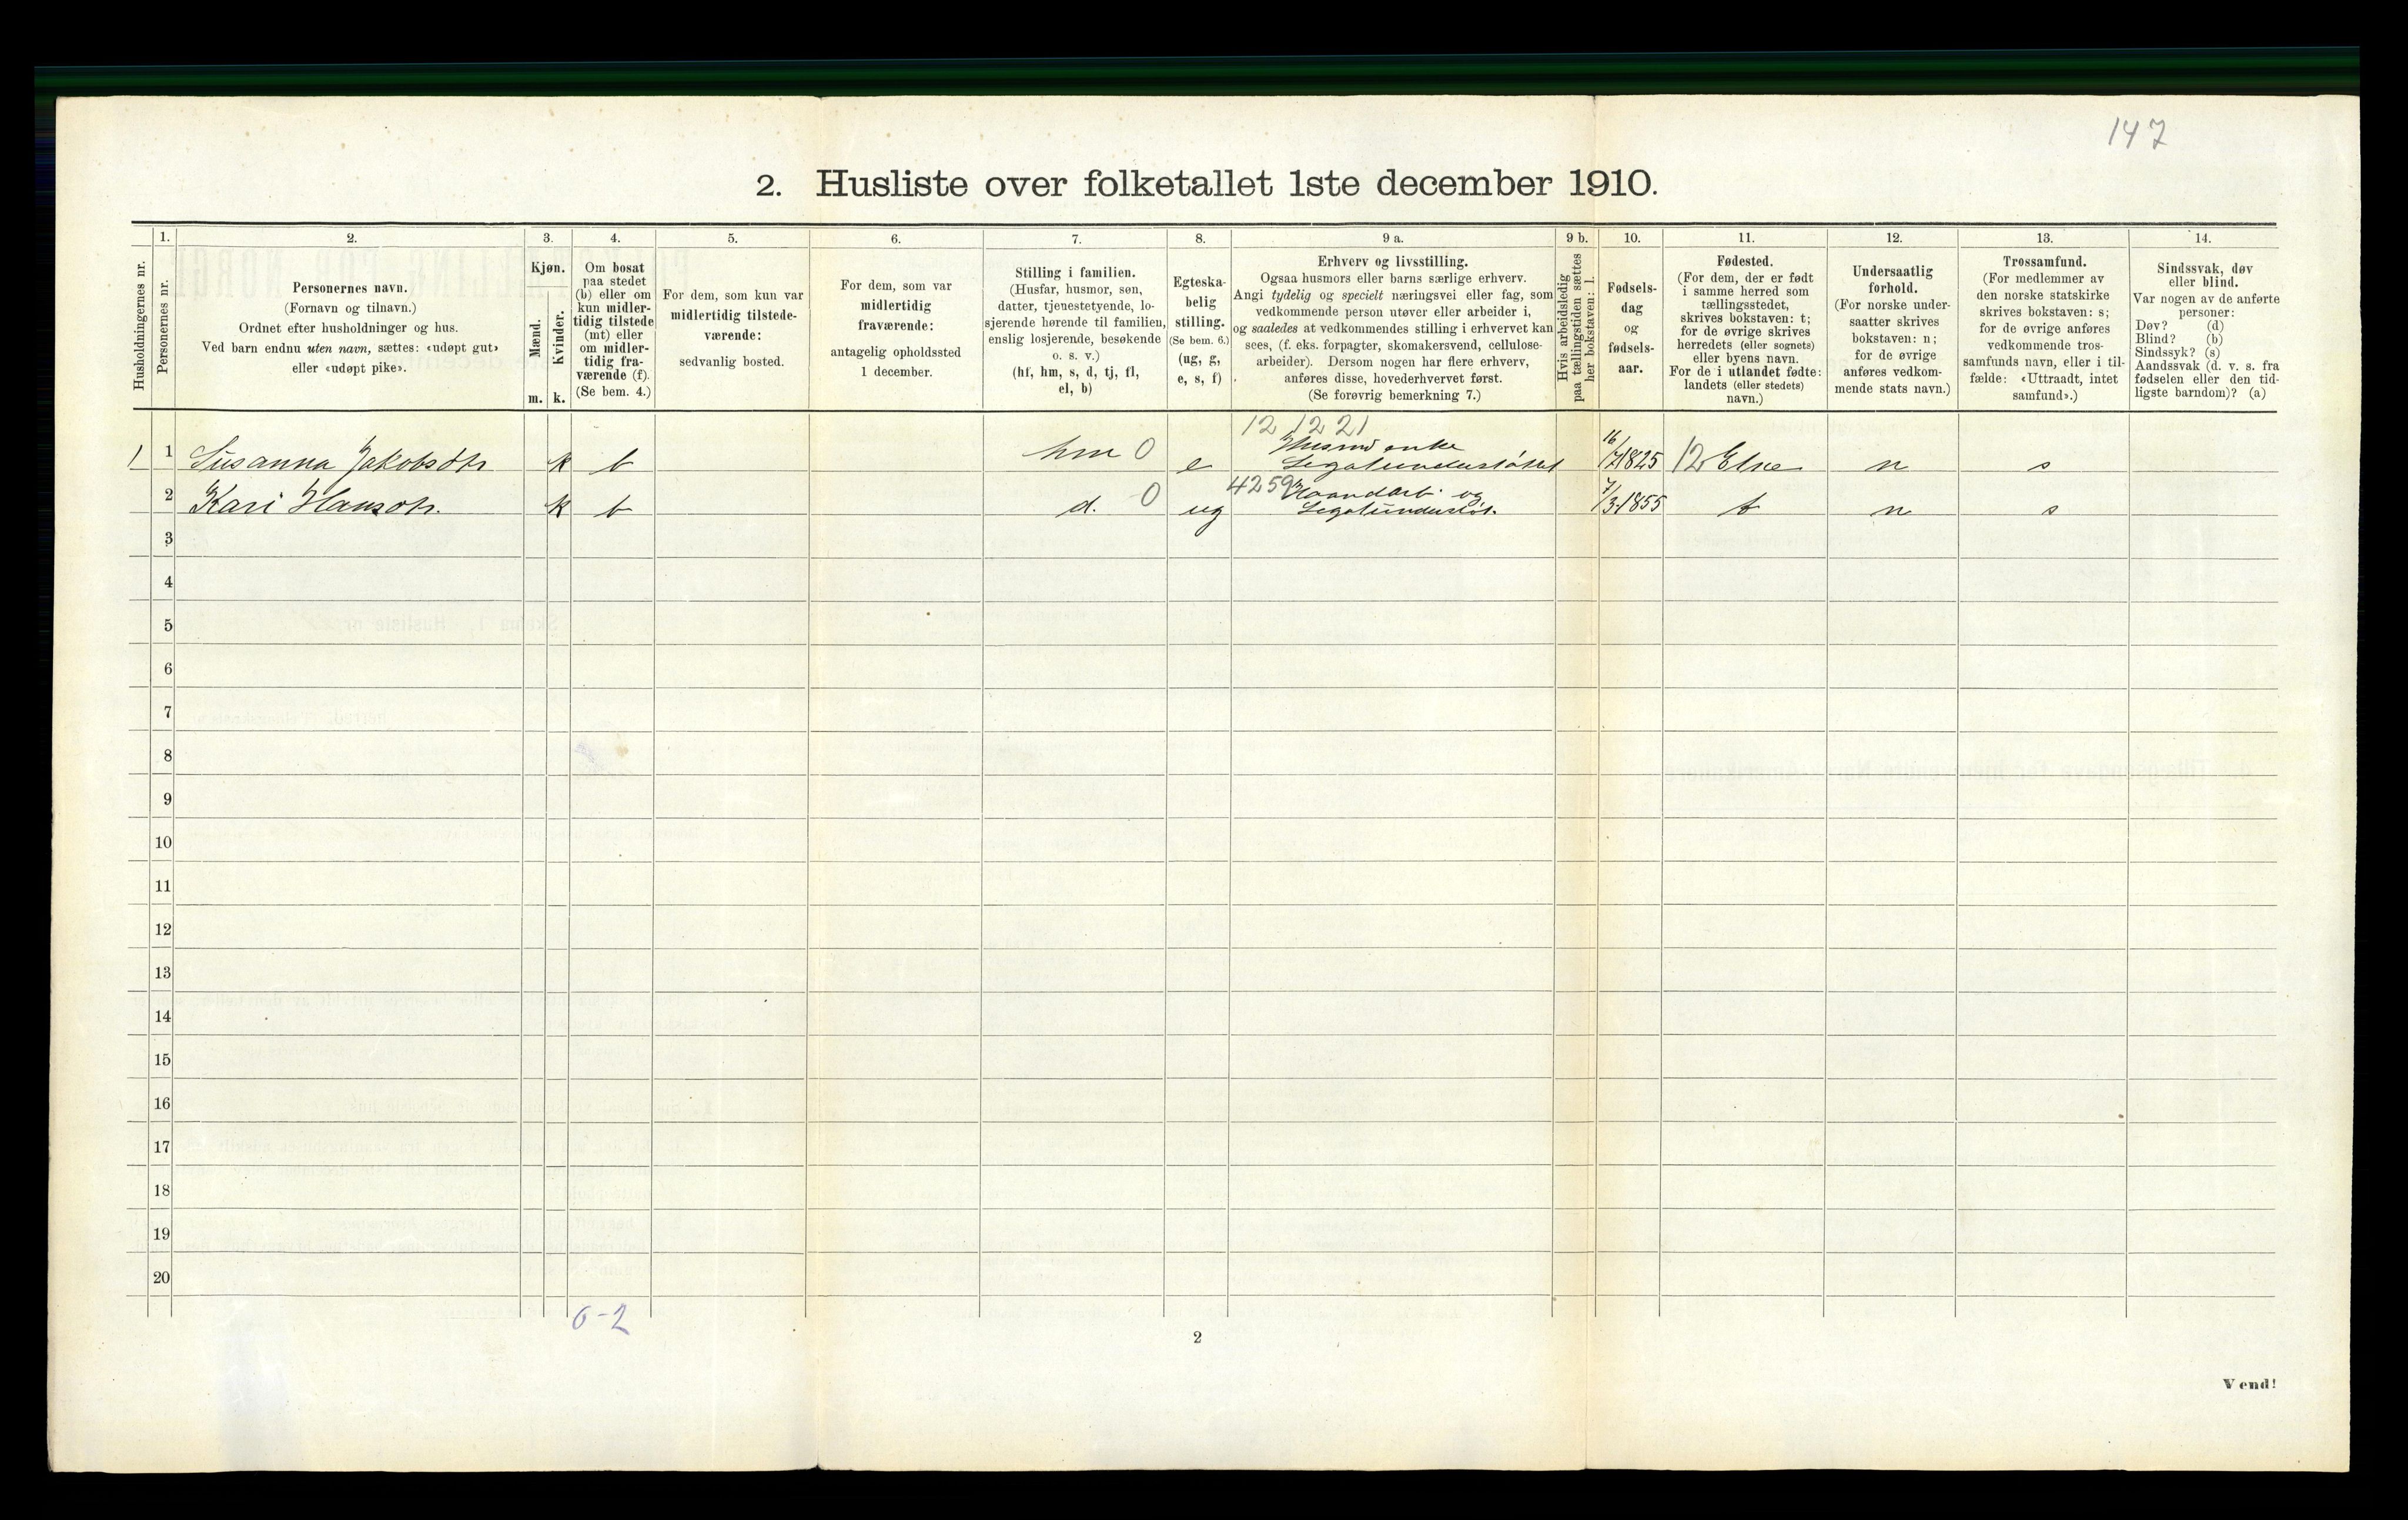 147
2. Husliste over folketallet 1ste december 1910.
Husholdningernes nr.
1.
Personernes nr.
2.
Personernes navn.
(Fornavn og tilnavn.)
Ordnet efter husholdninger og hus.
Ved barn endnu uten navn, sættes: «udøpt gut»
eller «udøpt pike».
3.
Kjøn.
Mænd.
Kvinder.
m. k.
4.
Om bosat
paa stedet
(b) eller om
kun midler-
tidig tilstede
(mt) eller
om midler-
tidig fra-
værende (f).
(Se bem. 4.)
5.
For dem, som kun var
midlertidig tilstede-
værende:
sedvanlig bosted.
6.
For dem, som var
midlertidig
fraværende:
antagelig opholdssted
1 december.
7.
Stilling i familien.
(Husfar, husmor, søn,
datter, tjenestetyende, lo-
sjerende hørende til familien,
enslig losjerende, besøkende
o. s. v.)
(hf, hm, s, d, tj, fl,
el, b)
8.
Egteska-
belig
stilling.
(Se bem. 6.)
(ug, g,
e, s, f)
9 a.
Erhverv og livsstilling.
Ogsaa husmors eller barns særlige erhverv.
Angi tydelig og specielt næringsvei eller fag, som
vedkommende person utøver eller arbeider i,
og saaledes at vedkommendes stilling i erhvervet kan
sees, (f. eks. forpagter, skomakersvend, cellulose-
arbeider). Dersom nogen har flere erhverv,
anføres disse, hovederhvervet først.
(Se forøvrig bemerkning 7.)
9 b.
Hvis arbeidsledig
paa tællingstiden sættes
her bokstaven: l.
10.
Fødsels-
dag
og
fødsels-
aar.
11.
Fødested.
(For dem, der er født
i samme herred som
tællingsstedet,
skrives bokstaven: t;
for de øvrige skrives
herredets (eller sognets)
eller byens navn.
For de i utlandet fødte:
landets (eller stedets)
navn.)
12.
Undersaatlig
forhold.
(For norske under-
saatter skrives
bokstaven: n;
for de øvrige
anføres vedkom-
mende stats navn.)
13.
Trossamfund.
(For medlemmer av
den norske statskirke
skrives bokstaven: s;
for de øvrige anføres
vedkommende tros-
samfunds navn, eller i til-
fælde: «Uttraadt, intet
samfund».)
14.
Sindssvak, døv
eller blind.
Var nogen av de anførte
personer:
Døv? (d)
Blind? (b)
Sindssyk? (s)
Aandssvak (d. v. s. fra
fødselen eller den tid-
ligste barndom)? (a)
12 1221
1 1 Susanna Jakobsdtr k b hm 0 e enke Legatunderstøttet 16/7 1825 12 Elve n s
2 Kari Hansdtr. k b d. 0 ug 4259 Haandarb. og Legatunderstøt. 7/3 1855 t n s
3
4
5
6
7
8
9
10
11
12
13
14
15
16
17
18
19
20
0-2
2
Vend!